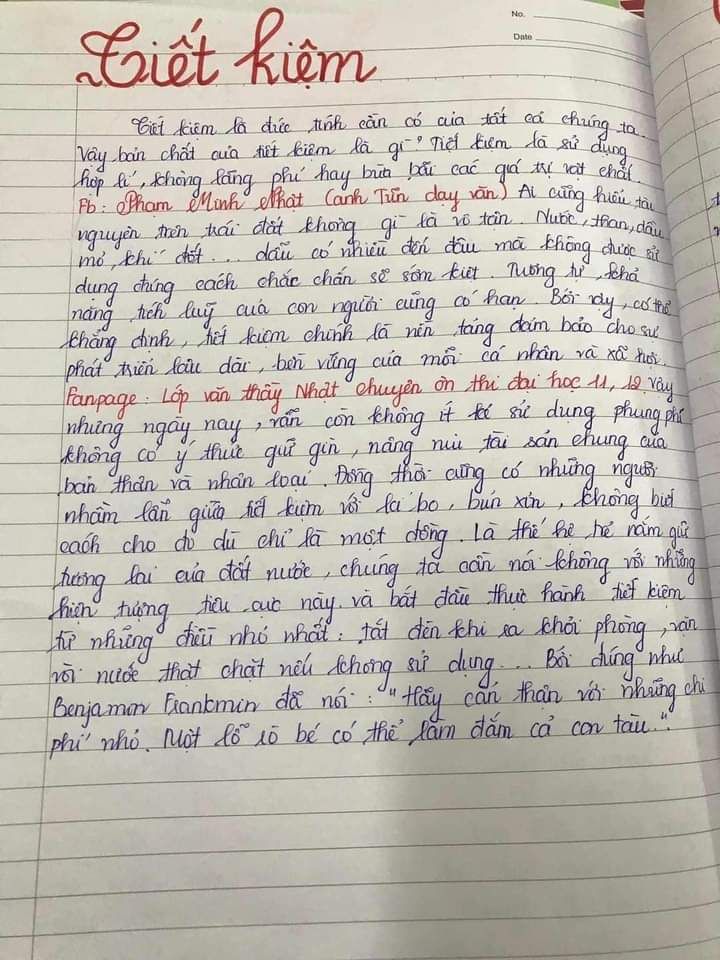 No.
Date
Tiết kiệm
Tiết kiệm là đức tính cần có của tất cả chúng ta.
Vậy bản chất của tiết kiệm là gì? Tiết kiệm là sử dụng
hợp lí, không lãng phí hay bừa bãi các giá trị vật chất.
Fb: Phạm Minh Nhật (anh Tiễn dạy văn) Ai cũng hiểu tài
nguyên trên trái đất không gì là vô tận. Nước, than, dầu
mỏ, khí đốt... dẫu có nhiều đến đâu mà không được sử
dụng đúng cách chắc chắn sẽ sớm kiệt. Tương tự, khả
năng tích luỹ của con người cũng có hạn. Bởi vậy, có thể
khẳng định, tiết kiệm chính là nền tảng đảm bảo cho sự
phát triển lâu dài, bền vững của mỗi cá nhân và xã hội.
Fanpage: Lớp văn thầy Nhật chuyên ôn thi đại học 11, 12 vậy
nhưng ngày nay, vẫn còn không ít kẻ sử dụng phung phí
không có ý thức giữ gìn, nâng niu tài sản chung của
bản thân và nhân loại. Đồng thời cũng có những người
nhầm lẫn giữa tiết kiệm với keo bo, bủn xỉn, không biết
cách cho đi dù chỉ là một đồng. Là thế hệ trẻ nắm giữ
tương lai của đất nước, chúng ta cần nói không với những
hiện tượng tiêu cực này và bắt đầu thực hành tiết kiệm
từ những điều nhỏ nhất: tắt đèn khi ra khỏi phòng, vặn
vòi nước thật chặt nếu không sử dụng... Bởi đúng như
Benjamon Frankmin đã nói: "Hãy cẩn thận với những chi
phí nhỏ. Một lỗ rò bé có thể làm đắm cả con tàu."